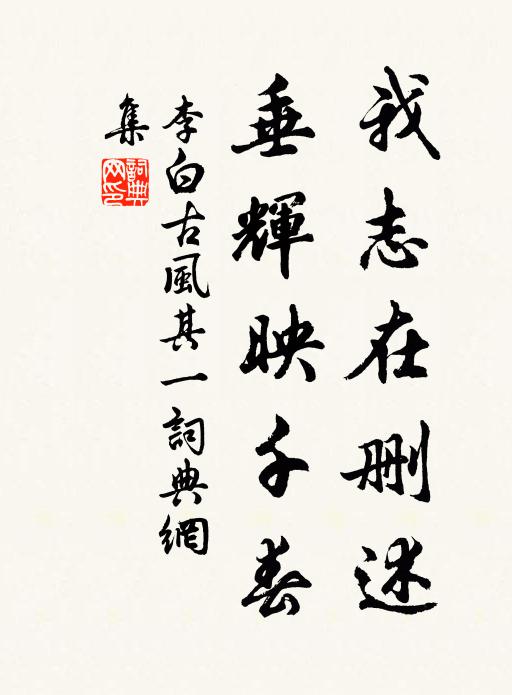 我志在删述
垂輝映千春
李白古風其一詞典網
集
詞典网印